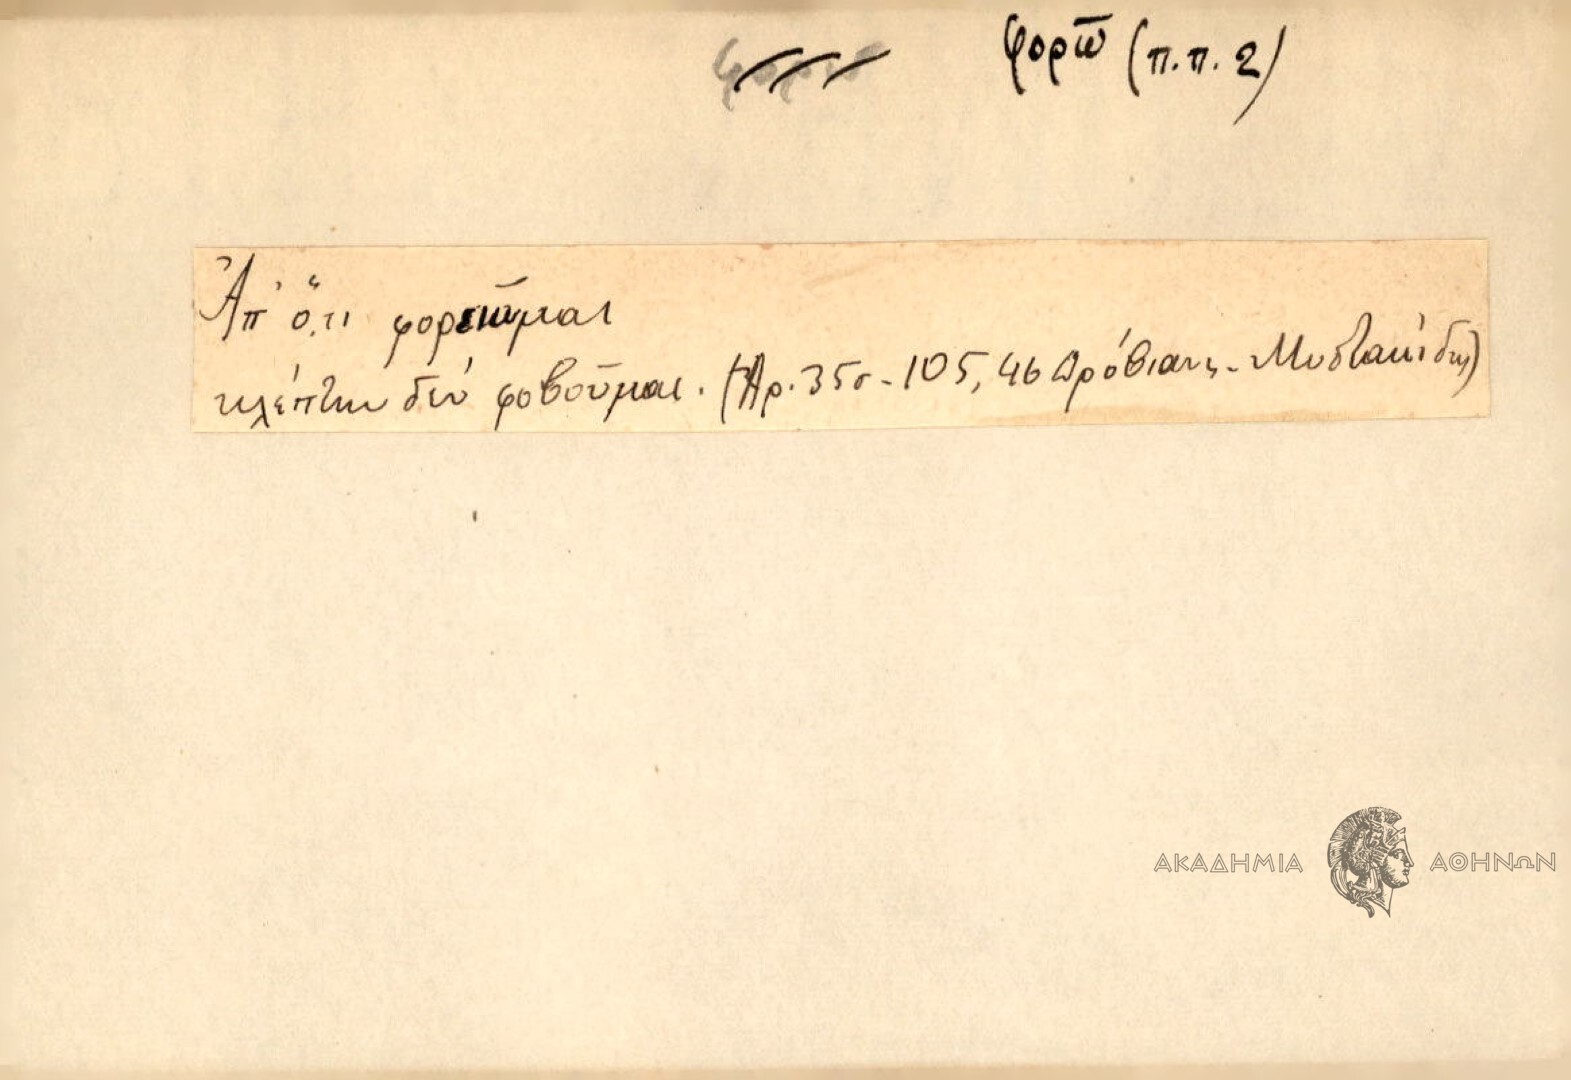 φορῶ (π.π. 2)
Ἀπ' ὅ,τι φορειῶμαι
κλέπτην δὲν φοβοῦμαι. (Ἀρ. 35σ. - 105, 46 Δρόβιανη - Μυστακίδης)
ΑΚΑΔΗΜΙΑ ΑΘΗΝΩΝ